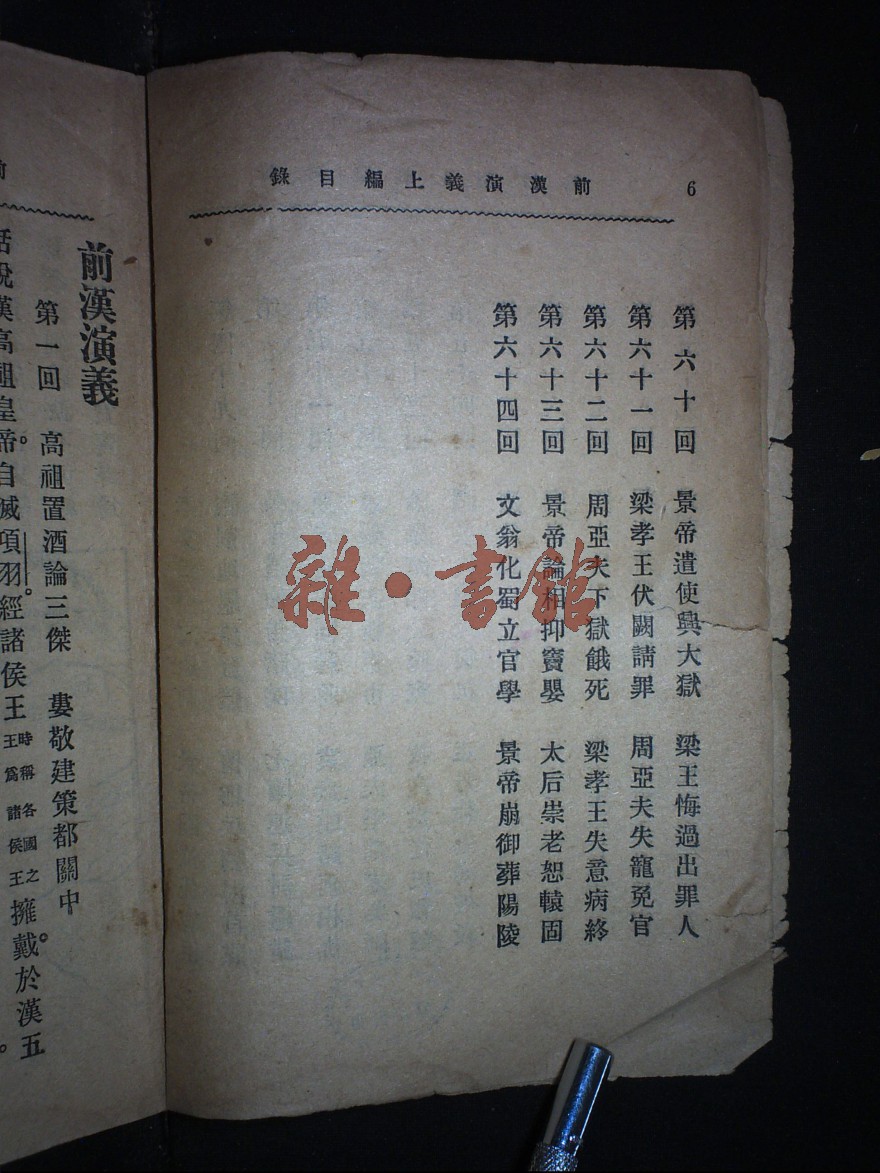 前漢演義上編目錄 6
第六十回 景帝遣使興大獄 梁王悔過出罪人
第六十一回 梁孝王伏闕請罪 周亞夫失寵免官
第六十二回 周亞夫下獄餓死 梁孝王失意病終
第六十三回 景帝論相抑竇嬰 太后崇老恕轅固
第六十四回 文翁化蜀立官學 景帝崩御葬陽陵
雜·書館
前漢演義
第一回 高祖置酒論三傑 婁敬建策都關中
話說漢高祖皇帝。自滅項羽。經諸侯王時稱各國之王爲諸侯王擁戴。於漢五